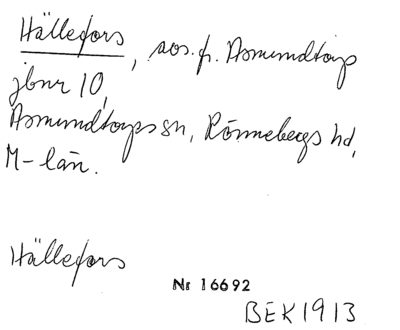 Hällefors, avs. fr. Asmundtorp
jbnr 10,
Asmundtorps sn, Rönnebergs hd,
M-län.
Hällefors
Nr 16692
BEK 1913